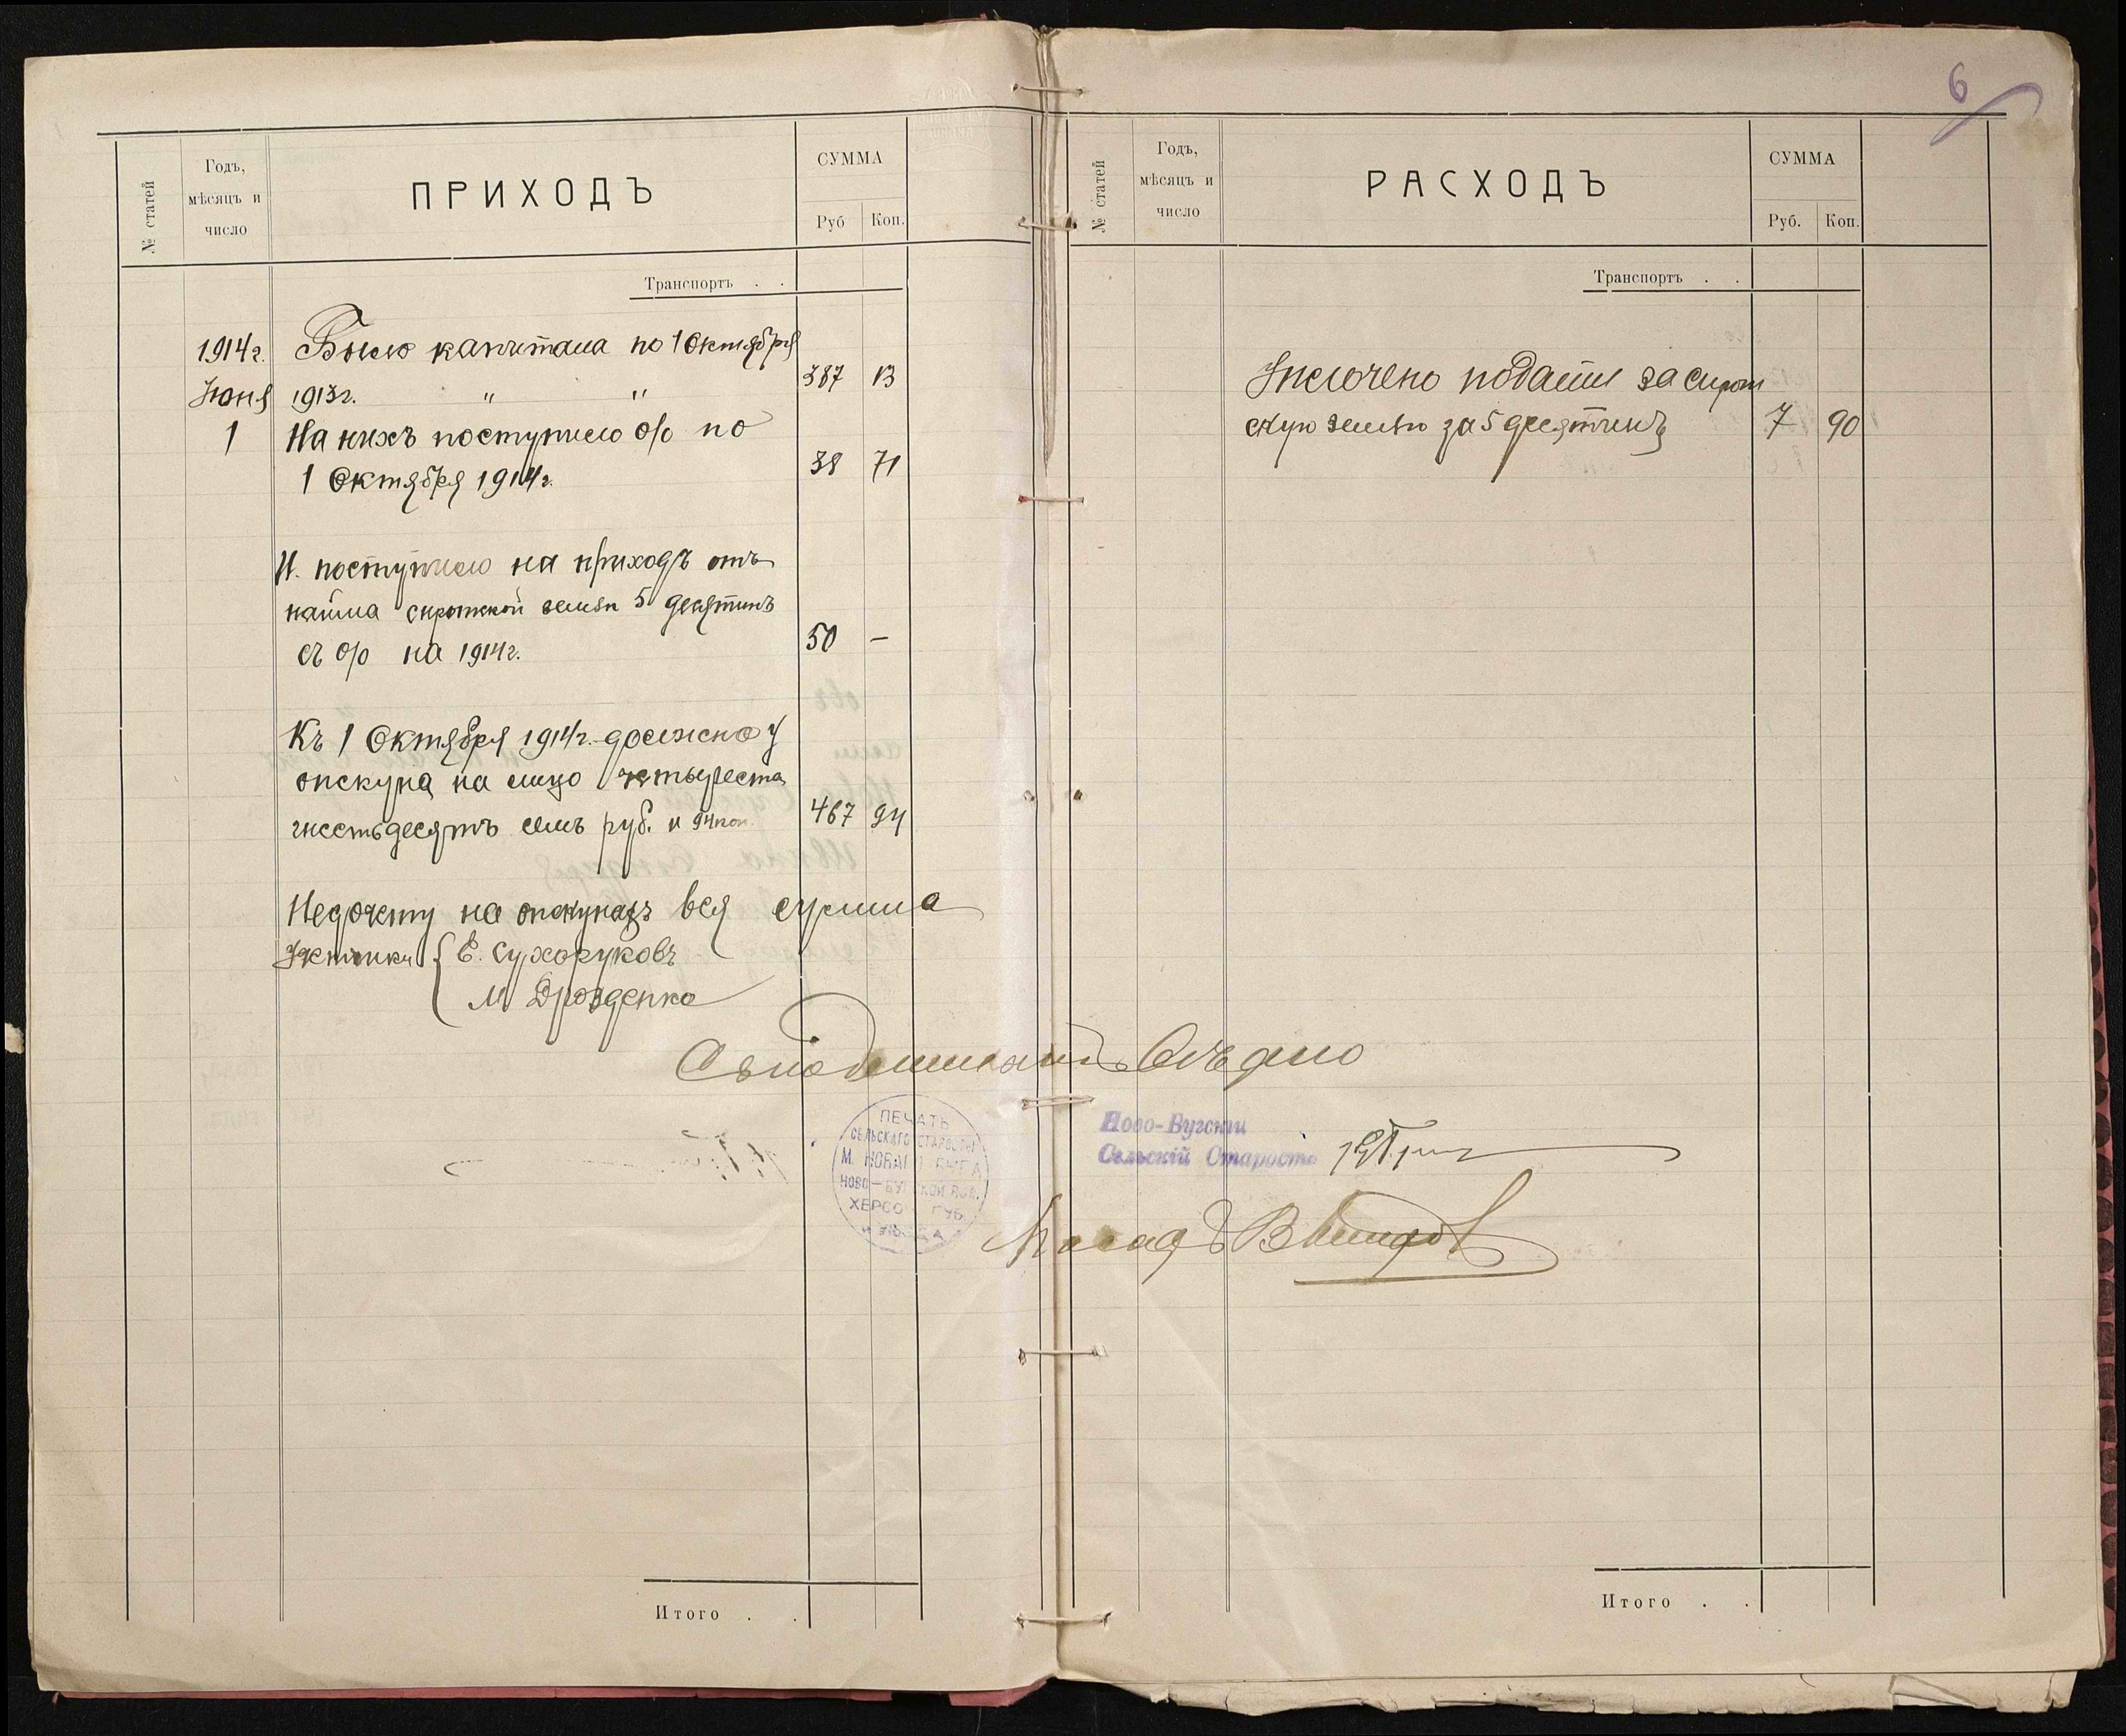 6
№ статей
Годъ,
мѣсяцъ и
число
ПРИХОДЪ
СУММА
Руб
Коп.
Транспортъ . .
1914 г. Было капитала по 1 Октября
Июня 1913 г. " " 387 13
1 На нихъ поступило о/о по
1 Октября 1914 г. 38 71
И. поступило на приходъ отъ
найма сиротской земли 5 десятинъ
съ о/о на 1914 г. 50 —
Къ 1 Октября 1914 г. должно у
опекуна на лицо четыреста
шестьдесятъ семь руб. и 94 коп. 467 94
Недочету на опекунахъ вся сумма
Учетчики { Е. Сухоруковъ
М Дрозденко
Итого . .
№ статей
Годъ,
мѣсяцъ и
число
РАСХОДЪ
СУММА
Руб.
Коп.
Транспортъ . .
подати за сирот
скую землю за 5 десятинъ 7 90
Съ подлиннымъ вѣрно
ПЕЧАТЬ
СЕЛЬСКАГО СТАРОСТЫ
М. НОВАГО БУГА
НОВО-БУГСКОЙ ВОЛ.
ХЕРСОН ГУБ.
И УѢЗДА
Ново-Бугскій
Сельскій Староста
Итого . .